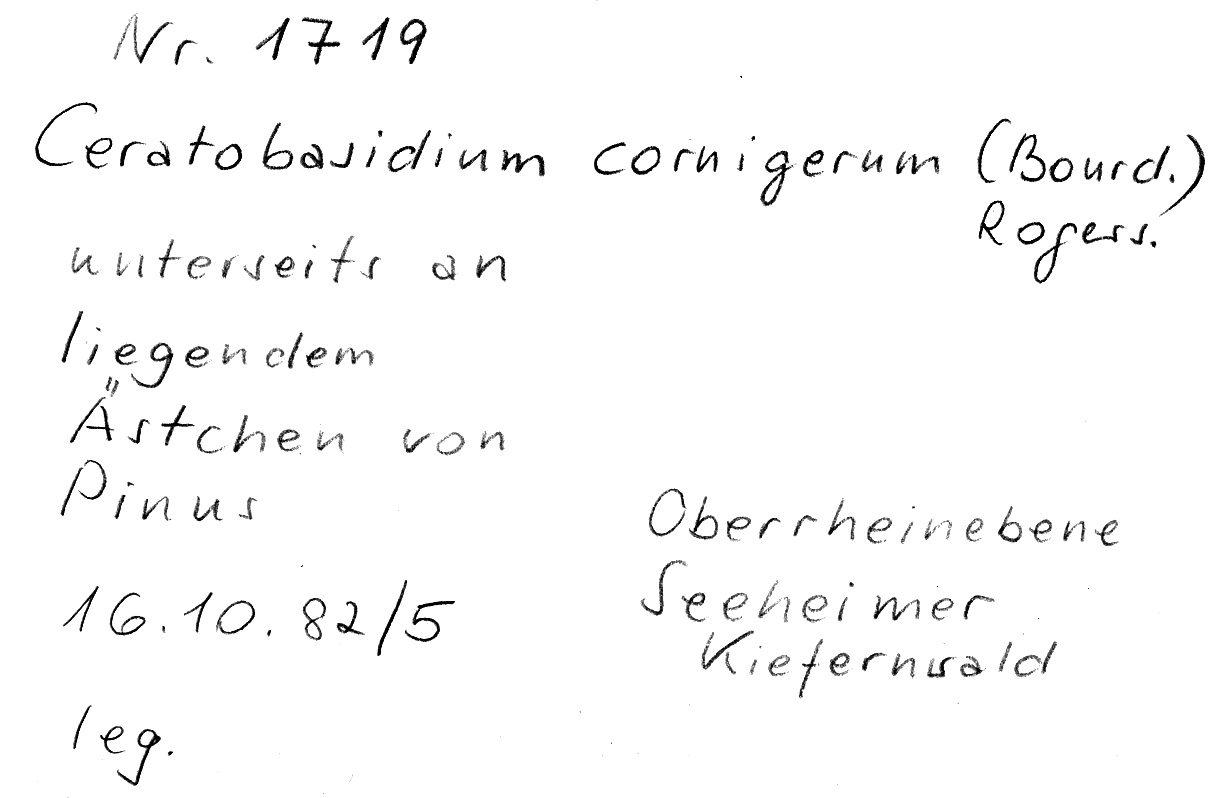 Nr. 1719
Ceratobasidium cornigerum (Bourd.)
Rogers.
unterseits an
liegendem
Ästchen von
Pinus
Oberrheinebene
16.10.82/5
Seeheimer
Kiefernwald
leg.